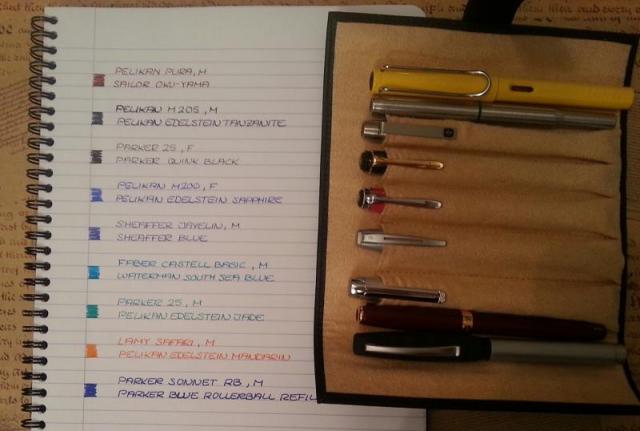 PELIKAN PURA, M
SAILOR OKU-YAMA
PELIKAN M205, M
PELIKAN EDELSTEIN TANZANITE
PARKER 25, F
PARKER QUINK BLACK
PELIKAN M200, F
PELIKAN EDELSTEIN SAPPHIRE
SHEAFFER JAVELIN, M
SHEAFFER BLUE
FABER CASTELL BASIC, M
WATERMAN SOUTH SEA BLUE
PARKER 25, M
PELIKAN EDELSTEIN JADE
LAMY SAFARI, M
PELIKAN EDELSTEIN MANDARIN
PARKER SONNET RB, M
PARKER BLUE ROLLERBALL REFIL